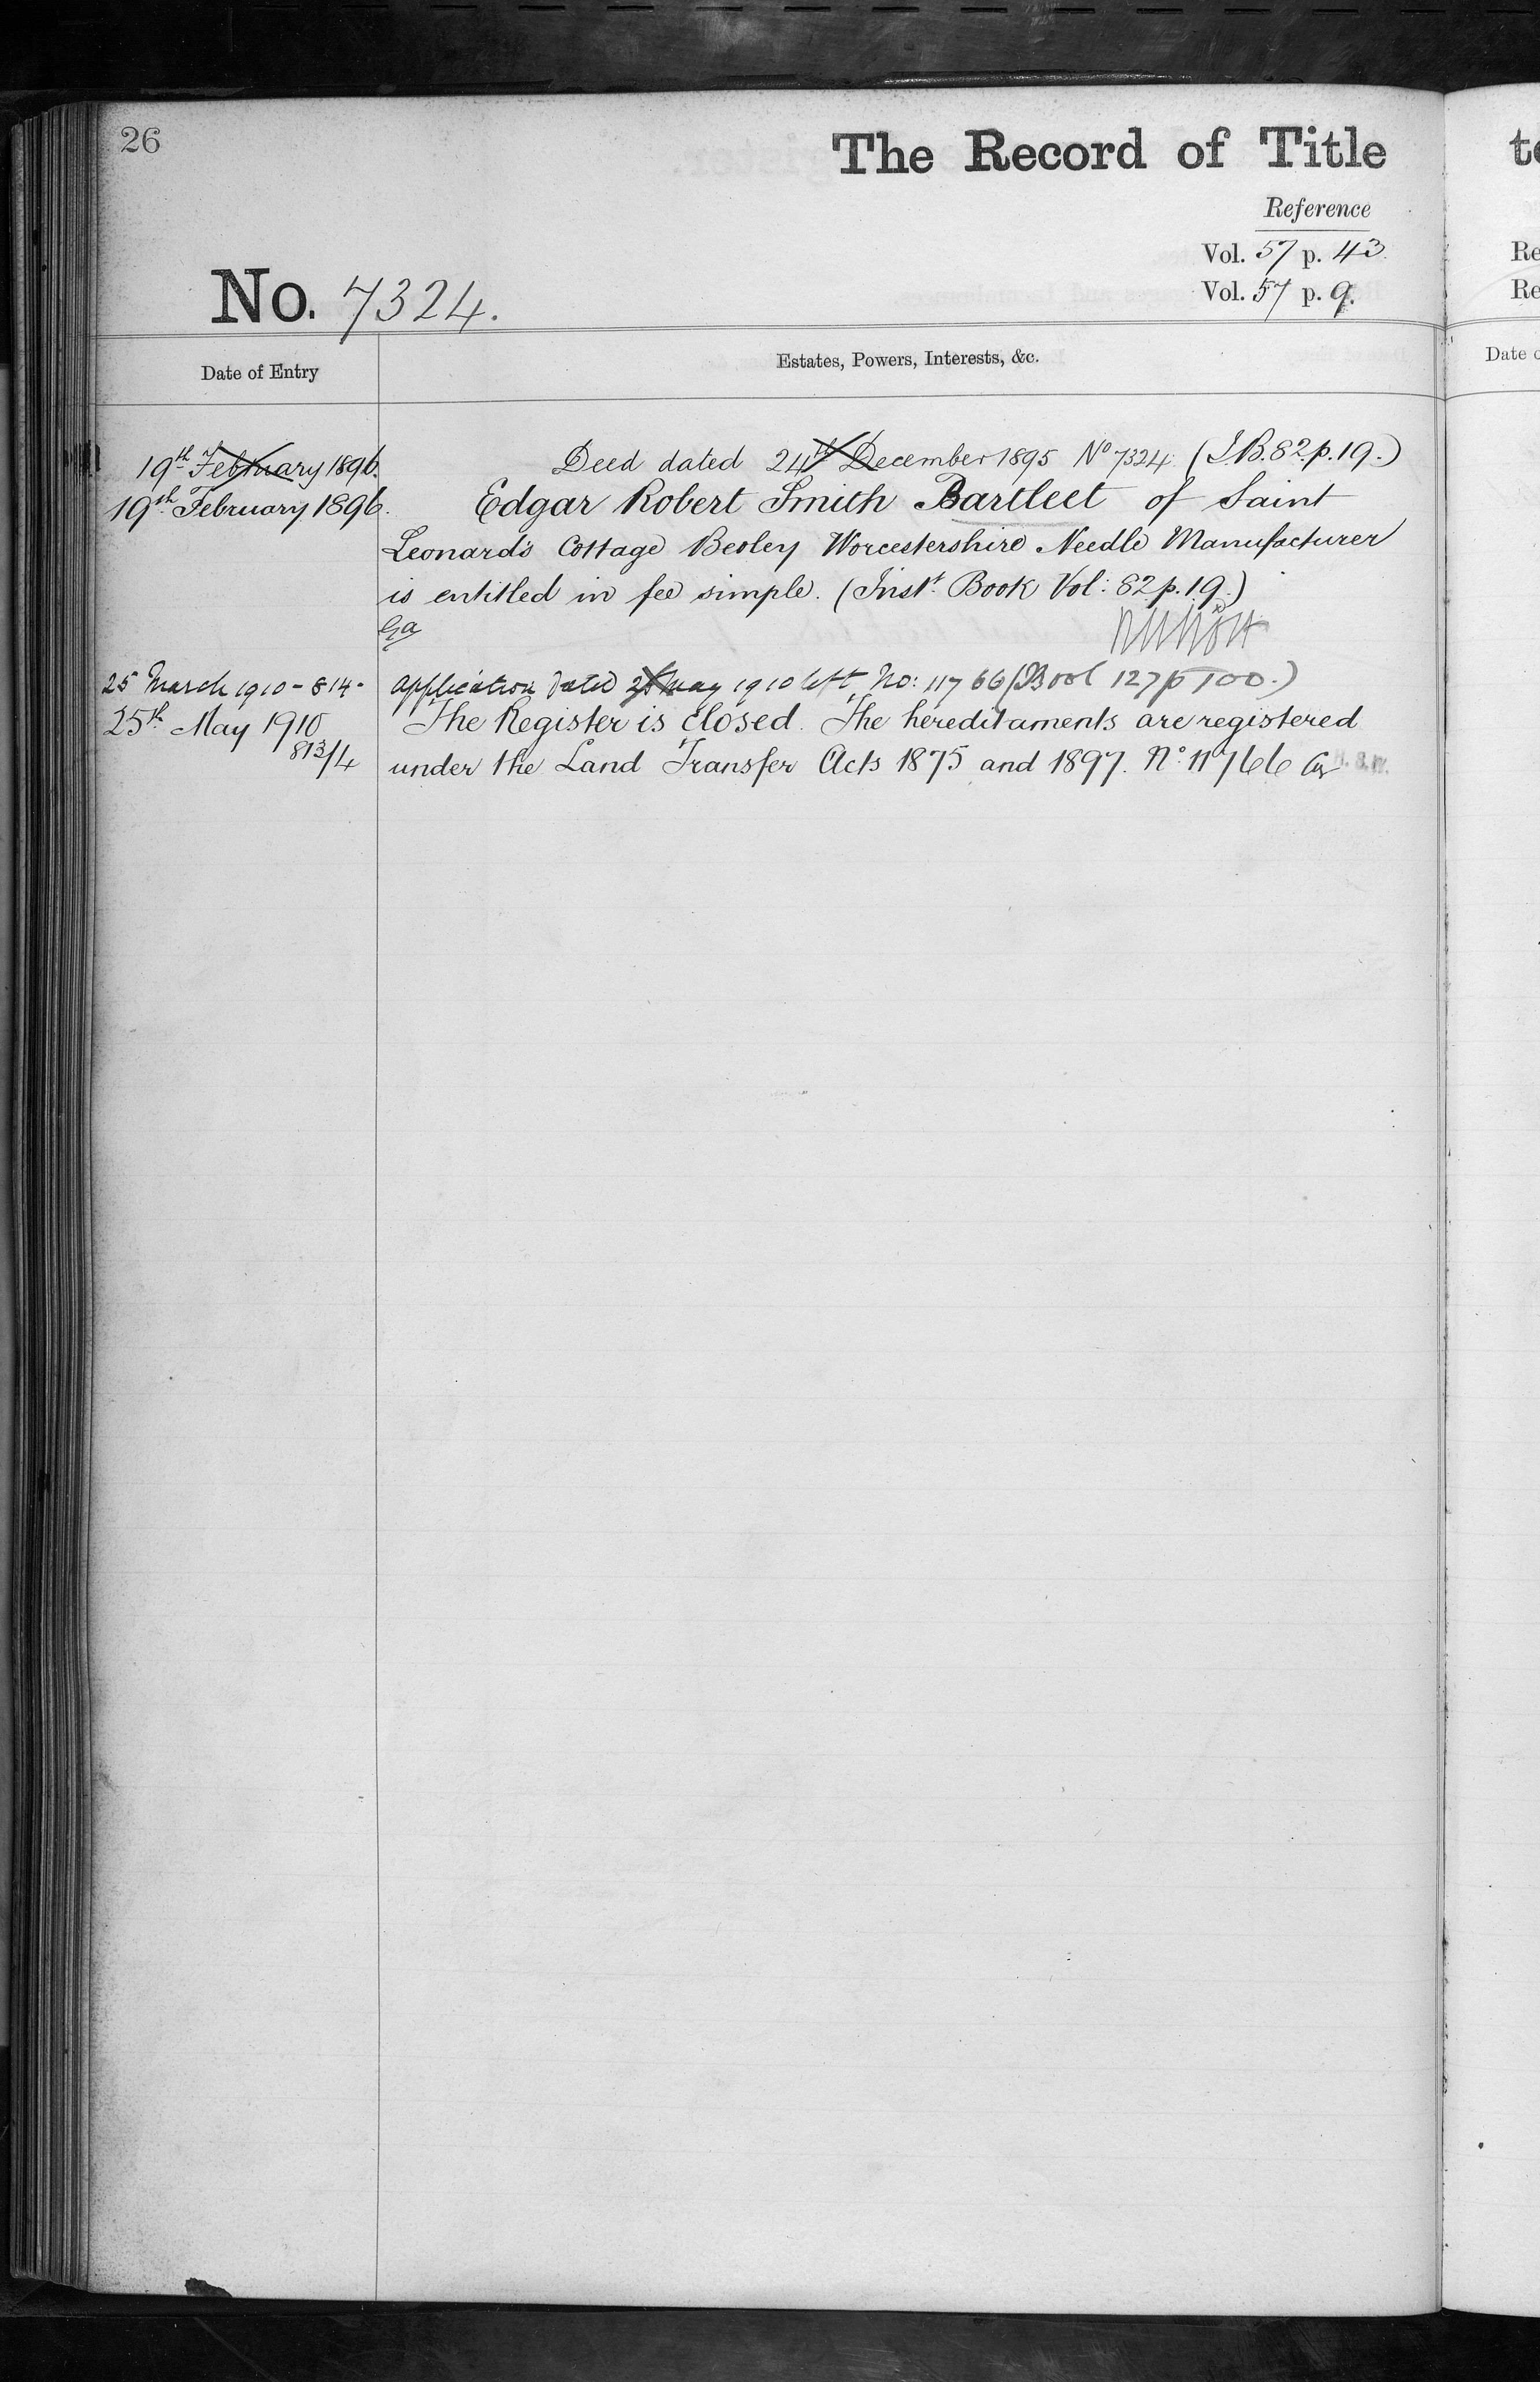 26
The Record of Title
Reference
Vol. 57 p. 43.
Vol. 57 p. 9.
No. 7324.
Date of Entry
Estates, Powers, Interests, &c.
19th February 1896.
Deed dated 24th December 1895 No 7324 (I.B. 82 p. 19.)
19th February 1896.
Edgar Robert Smith Bartleet of Saint
Leonard's Cottage Beoley Worcestershire Needle Manufacturer
is entitled in fee simple. (Inst. Book Vol: 82 p. 19.)
25 March 1910 - 814 -
Application dated May 1910 left No: 11766 (Book 127 p 100.)
25th May 1910
813/4
The Register is closed. The hereditaments are registered
under the Land Transfer Acts 1875 and 1897. No. 11766
te
Re
Re
Date o